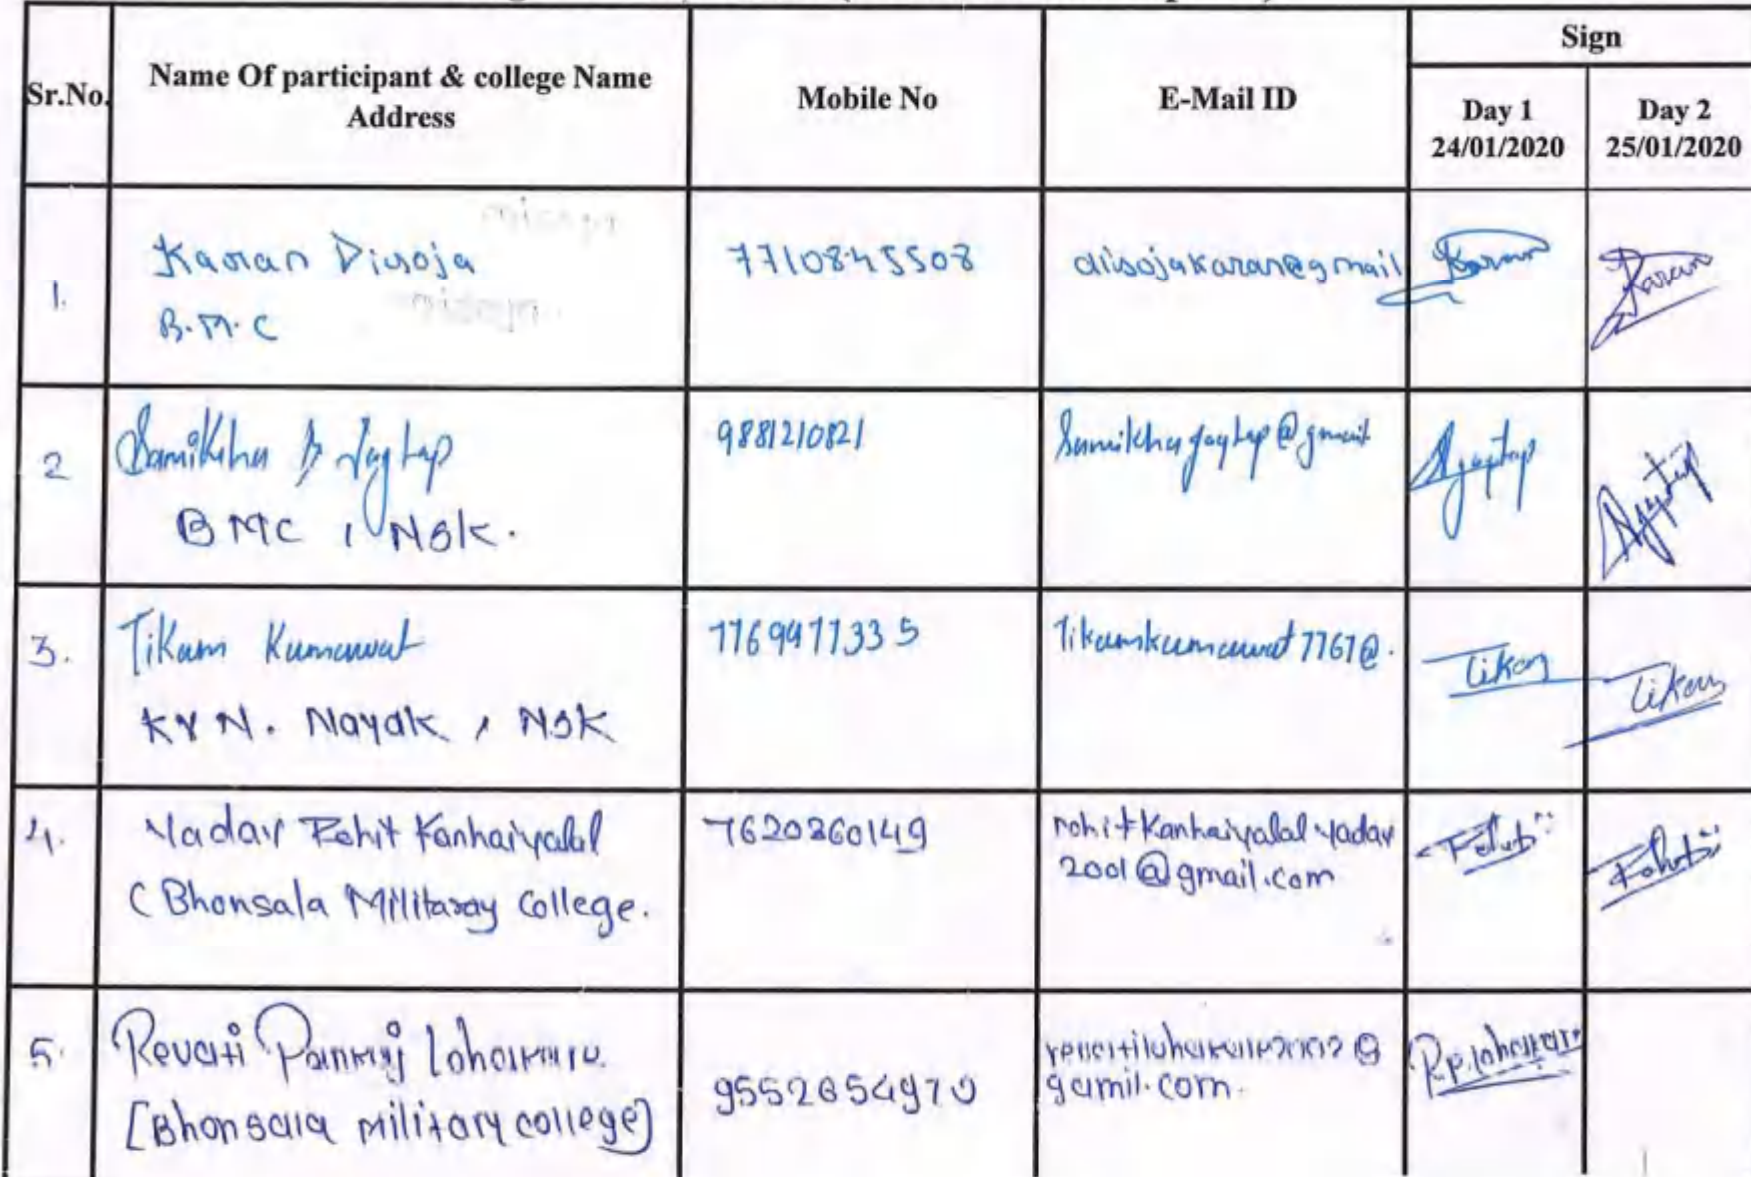 Sign
Sr.No.
Name Of participant & college Name
Address
Mobile No
E-Mail ID
Day 1
24/01/2020
Day 2
25/01/2020
1.
Karan Disoja
B.M.C
7710845508
disojakaran@gmail
Karan
Karan
2
Samiksha Jagtap
BMC , NSK.
9881210821
@gmail
3.
Tikam Kumawat
KVN. Nayak , NSK
7769477335
Tikamkumawat7767@.
Tikam
Tikam
4.
Yadav Rohit Kanhaiyalal
( Bhonsala Militaray College.
7620260149
rohitkanhaiyalal yadav
2001@gmail.com
Rohit
Rohit
5.
Revati Pankaj
[Bhonsala Military college]
9552654970
gamil.com.
R.P.